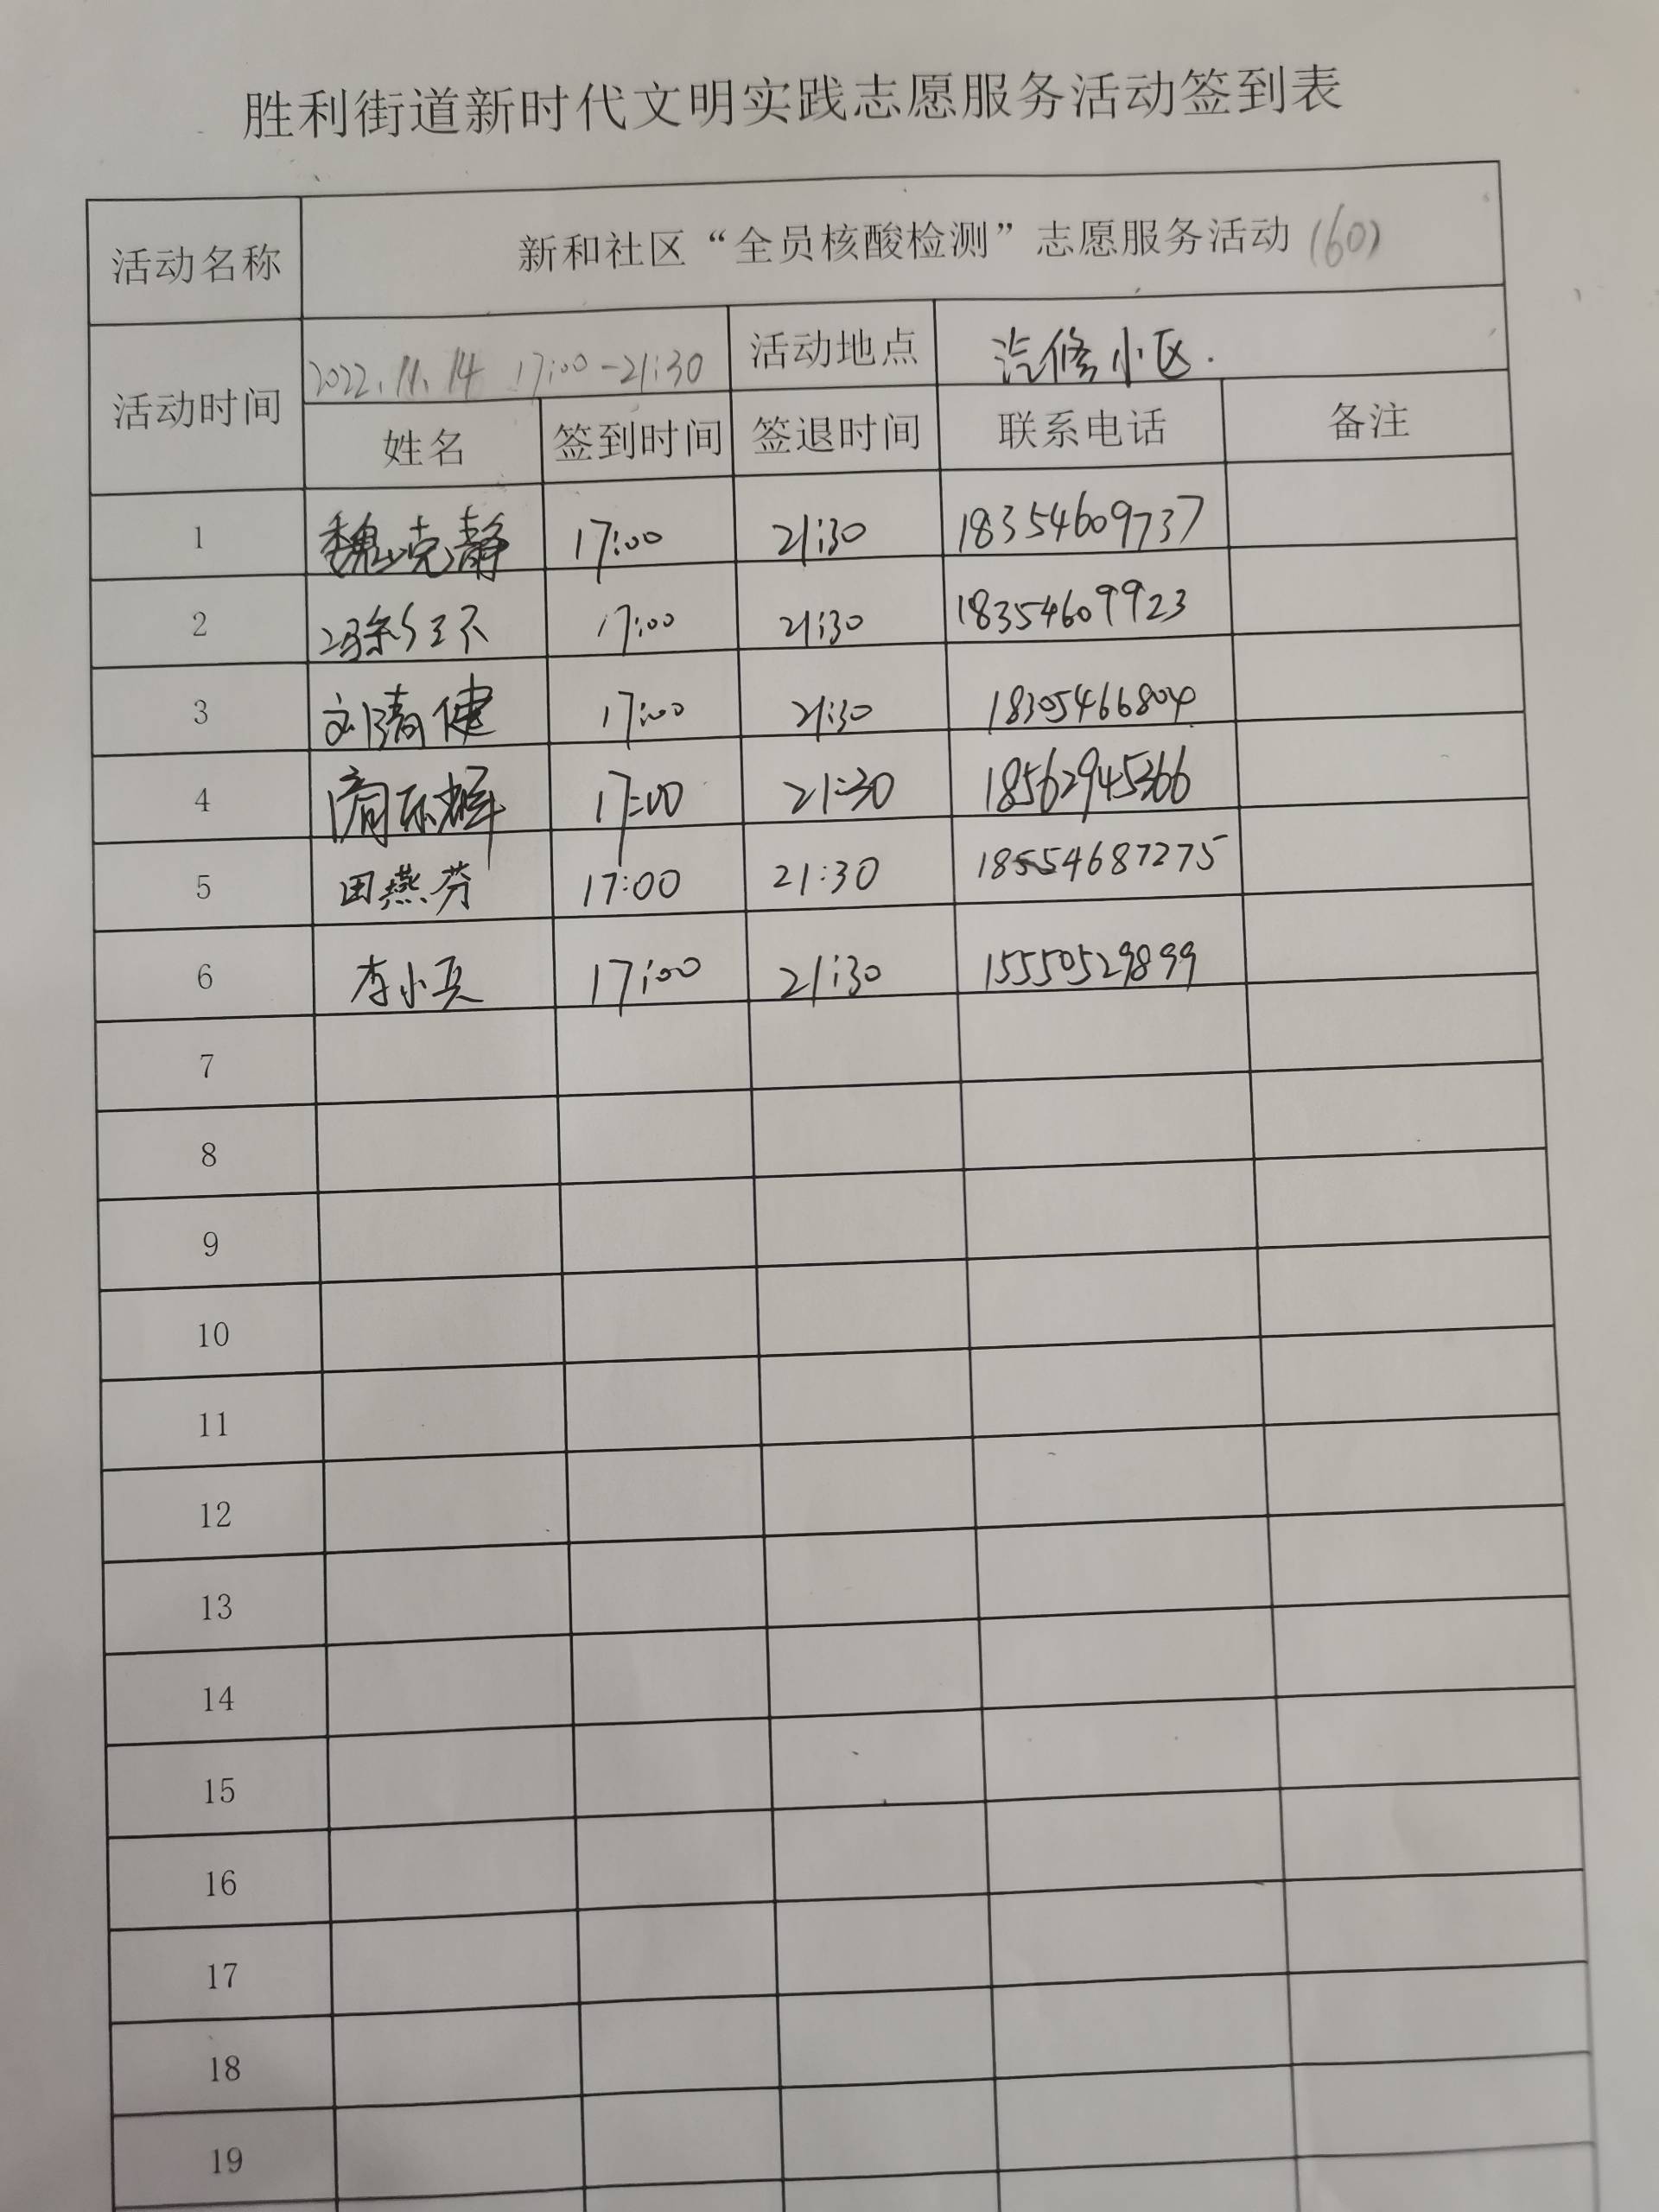 胜利街道新时代文明实践志愿服务活动签到表
活动名称 新和社区“全员核酸检测”志愿服务活动(60)
活动时间 2022.11.14 17:00-21:30 活动地点 汽修小区.
姓名 签到时间 签退时间 联系电话 备注
1 魏克静 17:00 21:30 18354609737
2 17:00 21:30 18354609923
3 刘清健 17:00 21:30 18305466804
4 17:00 21:30 18562945366
5 田燕芬 17:00 21:30 18554687275
6 李小兵 17:00 21:30 15550529899
7
8
9
10
11
12
13
14
15
16
17
18
19